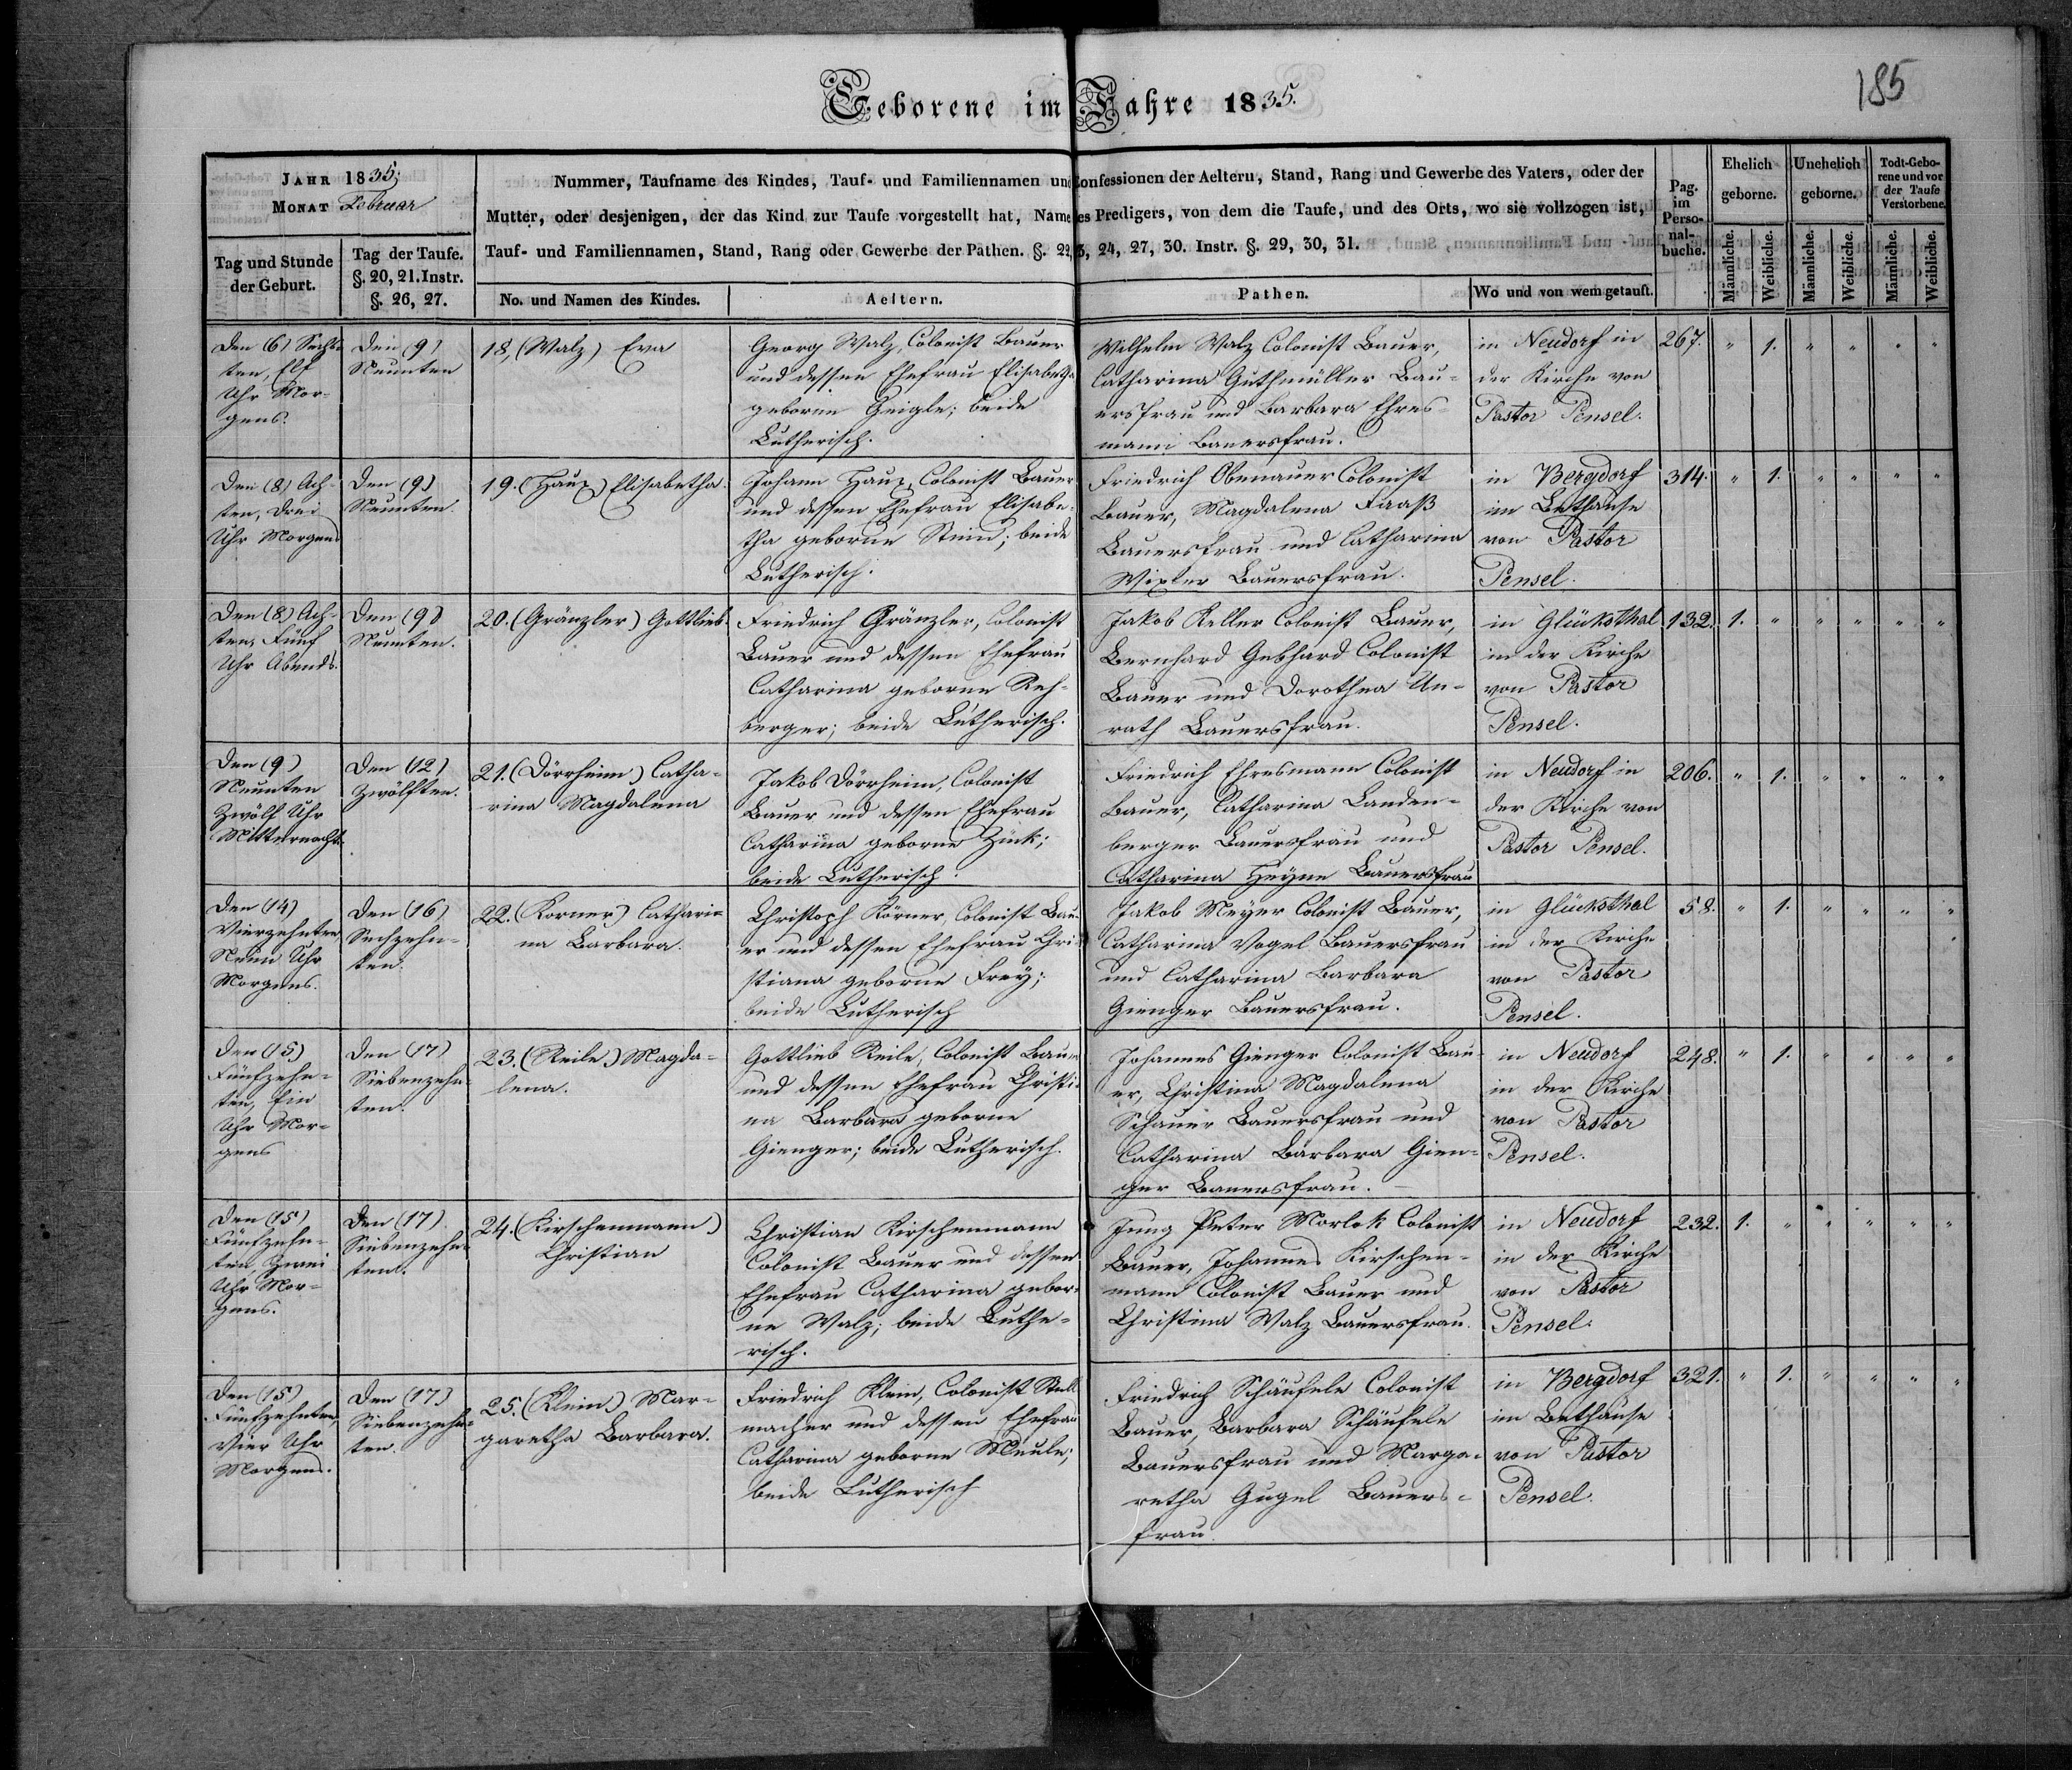 185
Geborene im Jahre 1835.
JAHR 1835.
MONAT Februar
Nummer, Taufname des Kindes, Tauf- und Familiennamen und Confessionen der Aeltern, Stand, Rang und Gewerbe des Vaters, oder der
Mutter, oder desjenigen, der das Kind zur Taufe vorgestellt hat, Name des Predigers, von dem die Taufe, und des Orts, wo sie vollzogen ist,
Tauf- und Familiennamen, Stand, Rang oder Gewerbe der Pathen. §. 22, 23, 24, 27, 30. Instr. §. 29, 30, 31.
Tag und Stunde
der Geburt.
Tag der Taufe.
§. 20, 21. Instr.
§. 26, 27.
No. und Namen des Kindes.
Aeltern.
Pathen.
Wo und von wem getauft.
Pag.
im
Perso-
nal-
buche.
Ehelich
geborne.
Unehelich
geborne.
Todt-Gebo-
rene und vor
der Taufe
Verstorbene.
Männliche.
Weibliche.
Männliche.
Weibliche.
Männliche.
Weibliche.
Den (6) Sechs-
ten, Elf
Uhr Mor-
gens.
Den (9)
Neunten
18. (Walz) Eva
Georg Walz, Colonist Bauer
und dessen Ehefrau Elisabetha
geborne Geigle; beide
Lutherisch.
Wilhelm Walz Colonist Bauer,
Catharina Guthmüller Bau-
ersfrau und Barbara Ehres-
mann Bauersfrau.
in Neudorf in
der Kirche von
Pastor Pensel.
267. " 1. " " " "
Den (8) Ach-
ten, Drei
Uhr Morgens
Den (9)
Neunten.
19. (Haux) Elisabetha.
Johann Haux, Colonist Bauer
und dessen Ehefrau Elisabe-
tha geborne Stein; beide
Lutherisch.
Friedrich Obenauer Colonist
Bauer, Magdalena Faaß
Bauersfrau und Catharina
Wixler Bauersfrau.
in Bergdorf
im Bethause
von Pastor
Pensel.
314. " 1. " " " "
Den (8) Ach-
ten, Fünf
Uhr Abends.
Den (9)
Neunten.
20. (Gränzler) Gottlieb.
Friedrich Gränzler, Colonist
Bauer und dessen Ehefrau
Catharina geborne Reh-
berger; beide Lutherisch.
Jakob Keller Colonist Bauer,
Bernhard Gebhard Colonist
Bauer und Dorothea An-
rath Bauersfrau.
in Glücksthal
in der Kirche
von Pastor
Pensel.
132. 1. " " " " "
Den (9)
Neunten
Zwölf Uhr
Mitternachts.
Den (12)
Zwölften.
21. (Dörrheim) Catha-
rina Magdalena
Jakob Dörrheim, Colonist
Bauer und dessen Ehefrau
Catharina geborne Zink;
beide Lutherisch.
Friedrich Ehresmann Colonist
Bauer, Catharina Landen-
berger Bauersfrau und
Catharina Heyne Bauersfrau
in Neudorf in
der Kirche von
Pastor Pensel.
206. " 1. " " " "
Den (14)
Vierzehnten
Neun Uhr
Morgens.
Den (16)
Sechzehn-
ten.
22. (Korner) Cathari-
na Barbara.
Christoph Körner, Colonist Bau-
er und dessen Ehefrau Chri-
stiana geborne Frey;
beide Lutherisch
Jakob Meyer Colonist Bauer,
Catharina Vogel Bauersfrau
und Catharina Barbara
Gienger Bauersfrau.
in Glücksthal
in der Kirche
von Pastor
Pensel.
58. " 1. " " " "
Den (15)
Fünfzehn-
ten, Ein
Uhr Mor-
gens
Den (17)
Siebenzehn-
ten.
23. (Keile) Magda-
lena.
Gottlieb Keile, Colonist Bauer
und dessen Ehefrau Christi-
na Barbara geborne
Gienger; beide Lutherisch.
Johannes Gienger Colonist Bau-
er, Christina Magdalena
Schauer Bauersfrau und
Catharina Barbara Gien-
ger Bauersfrau.
in Neudorf
in der Kirche
von Pastor
Pensel.
248. " 1. " " " "
Den (15)
Fünfzehn-
ten, Zwei
Uhr Mor-
gens.
Den (17)
Siebenzehn-
ten.
24. (Kirschenmann)
Christian
Christian Kirschenmann
Colonist Bauer und dessen
Ehefrau Catharina gebor-
ne Walz; beide Luthe-
risch.
Jung Peter Morlok Colonist
Bauer, Johannes Kirschen-
mann Colonist Bauer und
Christina Walz Bauersfrau.
in Neudorf
in der Kirche
von Pastor
Pensel.
232. 1. " " " " "
Den (15)
Fünfzehnten,
Vier Uhr
Morgens.
Den (17)
Siebenzehn-
ten.
25. (Klein) Mar-
garetha Barbara.
Friedrich Klein, Colonist Stell
macher und dessen Ehefrau
Catharina geborne Meule;
beide Lutherisch
Friedrich Schäufele Colonist
Bauer, Barbara Schäufele
Bauersfrau und Marga-
retha Gugel Bauers-
frau.
in Bergdorf
im Bethause
von Pastor
Pensel.
321. " 1. " " " "